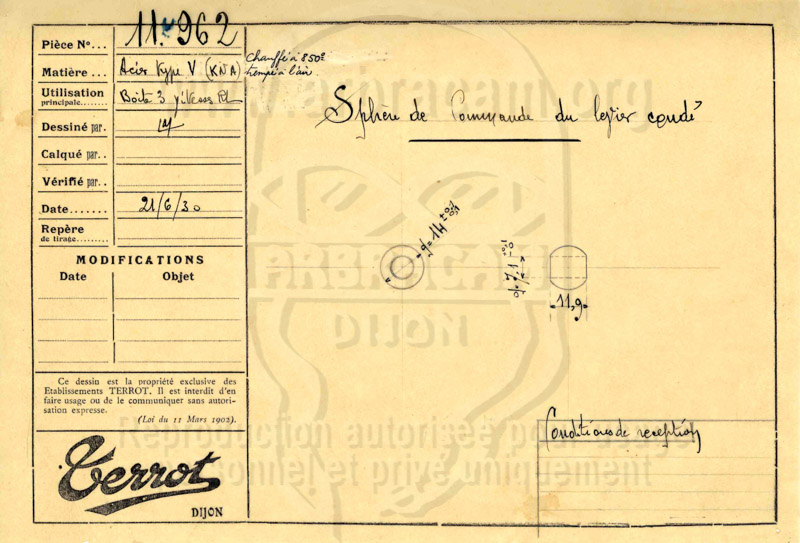 Pièce N°... 11.962
Matière ... Acier type V (KNA) Chauffé à 850°
trempé à l'air
Utilisation
principale....... Boite 3 vitesses
Dessiné par.
Calqué par..
Vérifié par..
Date....... 21/6/30
Repère
de tirage.........
MODIFICATIONS
Date Objet
Ce dessin est la propriété exclusive des
Etablissements TERROT. Il est interdit d'en
faire usage ou de le communiquer sans autori-
sation expresse.
(Loi du 11 Mars 1902).
Terrot
DIJON
www.arbracam.org
Sphère de Commande du levier coudé
14 ±0,1
7,1
11,9
ARBRACAM
DIJON
Conditions de reception
Reproduction autorisée pour usage
personnel et privé uniquement